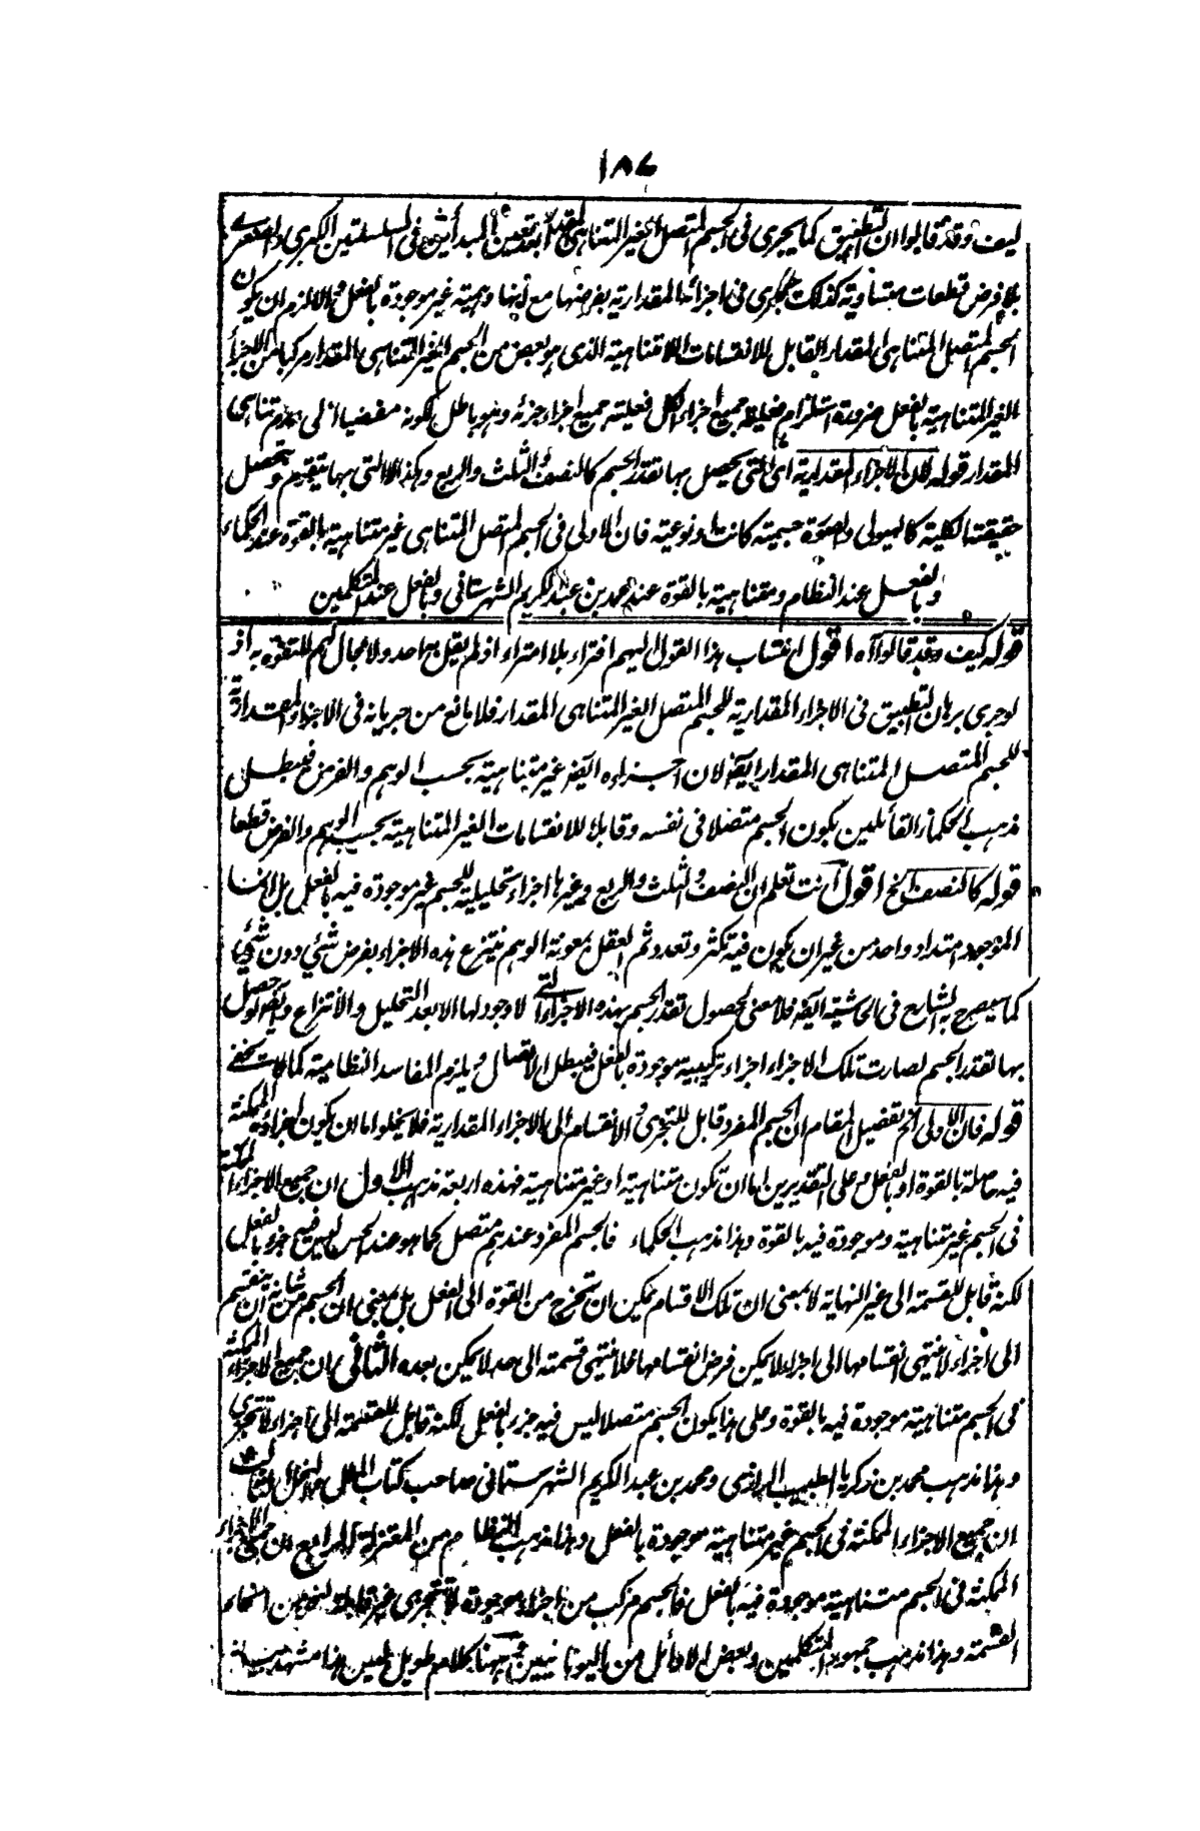 ١٨٧
كيف وقد قالوا ان التطبيق كما يجرى فى الجسم المتصل الغير المتناهى المقدار بتعيين المبدأين فى السلسلتين الكبرى والصغرى
بلا فرض قطعات متساوية كذلك يجرى فى اجزائها المقدارية بفرضها مع انها وهمية غير موجودة بالفعل والا لزم ان يكون
الجسم المتصل المتناهى المقدار القابل للانقسامات اللامتناهية الذى هو بعض من الجسم الغير المتناهى المقدار مركبا من الاجزاء
الغير المتناهية بالفعل ضرورة استلزام فعلية جميع اجزاء الكل فعلية جميع اجزاء جزئه وهو باطل لكونه مفضيا الى عدم تناهى
المقدار قوله فان الاجزاء المقدارية اى التى يحصل بها تقدر الجسم كالنصف والثلث والربع وهكذا لا التى بها يتقوم وتحصل
حقيقتها الكلية كالهيولى والصورة جسمية كانت او نوعية فان الاولى فى الجسم المتصل المتناهى غير متناهية بالقوة عند الحكماء
وبالفعل عند النظام ومتناهية بالقوة عند محمد بن عبد الكريم الشهرستانى وبالفعل عند المتكلمين
قوله كيف وقد قالوا آه اقول انتساب هذا القول اليهم افتراء بلا امتراء اذ لم يقل به احد ولا مجال لهم للتفوه به اذ
لو جرى برهان التطبيق فى الاجزاء المقدارية للجسم المتصل الغير المتناهى المقدار فلا مانع من جريانه فى الاجزاء المقدارية
للجسم المتصل المتناهى المقدار ايضا لان اجزاءه ايضا غير متناهية بحسب الوهم والفرض فيبطل
مذهب الحكماء القائلين بكون الجسم متصلا فى نفسه وقابلا للانقسامات الغير المتناهية بحسب الوهم والفرض قطعا
قوله كالنصف الخ اقول انت تعلم ان النصف والثلث والربع وغيرها اجزاء تحليلية للجسم غير موجودة فيه بالفعل بل انما
الموجود امتداد واحد من غير ان يكون فيه تكثر وتعدد ثم العقل بمعونة الوهم ينتزع هذه الاجزاء بفرض شئ دون شئ
كما يصرح به الشارح فى الحاشية ايضا فلا معنى لحصول تقدر الجسم بهذه الاجزاء التى لا وجود لها الا بعد التحليل والانتزاع وايضا لو حصل
بها تقدر الجسم لصارت تلك الاجزاء اجزاء تركيبية موجودة بالفعل فيبطل الاتصال ويلزم المفاسد النظامية كما لا يخفى
قوله فان الاولى الخ تفصيل المقام ان الجسم المفرد قابل للتجزى والانقسام الى الاجزاء المقدارية فلا يخلو اما ان يكون اجزاؤه الممكنة
فيه حاصلة بالقوة او بالفعل وعلى التقديرين اما ان تكون متناهية او غير متناهية فهذه اربعة مذاهب الاول ان جميع الاجزاء الممكنة
فى الجسم غير متناهية وموجودة فيه بالقوة وهذا مذهب الحكماء فالجسم المفرد عندهم متصل كما هو عند الحس ليس فيه جزء بالفعل
لكنه قابل للقسمة الى غير النهاية لا بمعنى ان تلك الاقسام يمكن ان تخرج من القوة الى الفعل بل بمعنى ان الجسم من شانه ان ينقسم
الى اجزاء لا ينتهى انقسامها الى اجزاء لا يمكن فرض انقسامها فلا تنتهى قسمته الى حد لا يمكن بعده الثانى ان جميع الاجزاء الممكنة
فى الجسم متناهية موجودة فيه بالقوة وعلى هذا يكون الجسم متصلا ليس فيه جزء بالفعل لكنه قابل للقسمة الى اجزاء لا تتجزى
وهذا مذهب محمد بن زكريا الطبيب الرازى ومحمد بن عبد الكريم الشهرستانى صاحب كتاب الملل والنحل الثالث
ان جميع الاجزاء الممكنة فى الجسم غير متناهية موجودة بالفعل وهذا مذهب النظام من المعتزلة الرابع ان جميع الاجزاء
الممكنة فى الجسم متناهية موجودة فيه بالفعل فالجسم مركب من اجزاء موجودة لا تتجزى غير قابلة لنحو من انحاء
القسمة وهذا مذهب جمهور المتكلمين وبعض الاوائل من اليونانيين وههنا كلام طويل ليس هذا مشهد بيانه